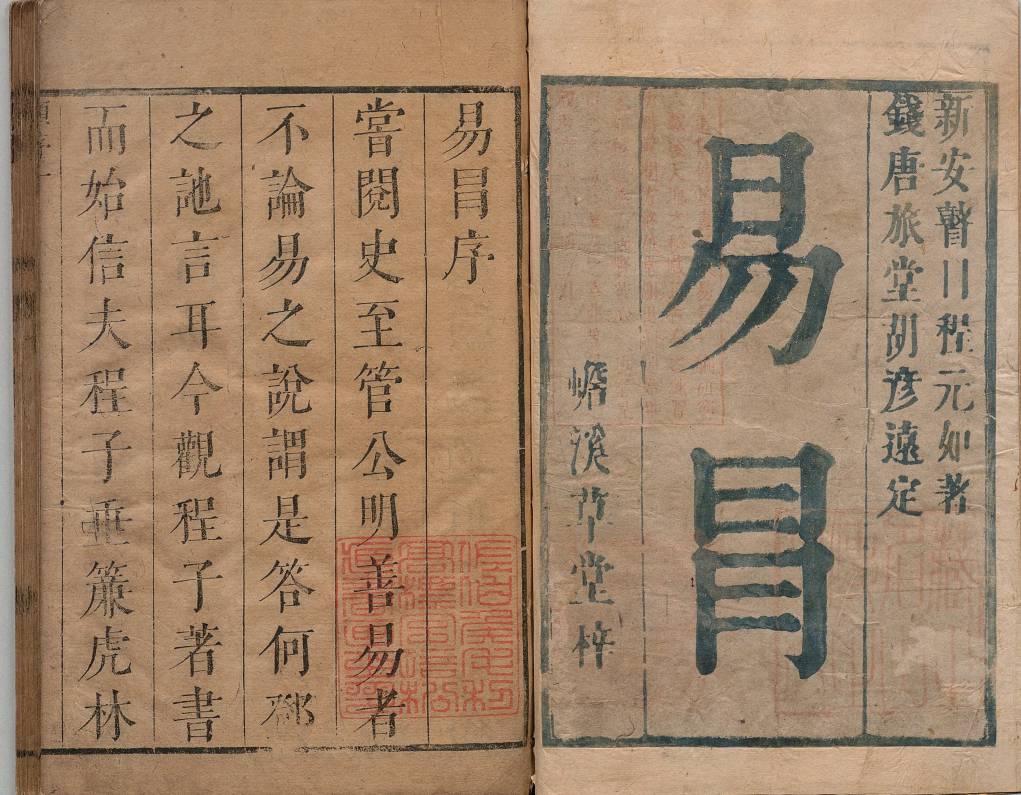 新安瞽目程元如著
錢唐旅堂胡彥遠定
易冒
溪草堂梓
易冒序
嘗閱史至管公明善易者
不論易之說謂是答何鄧
之訑言耳今觀程子著書
而始信夫程子垂簾虎林